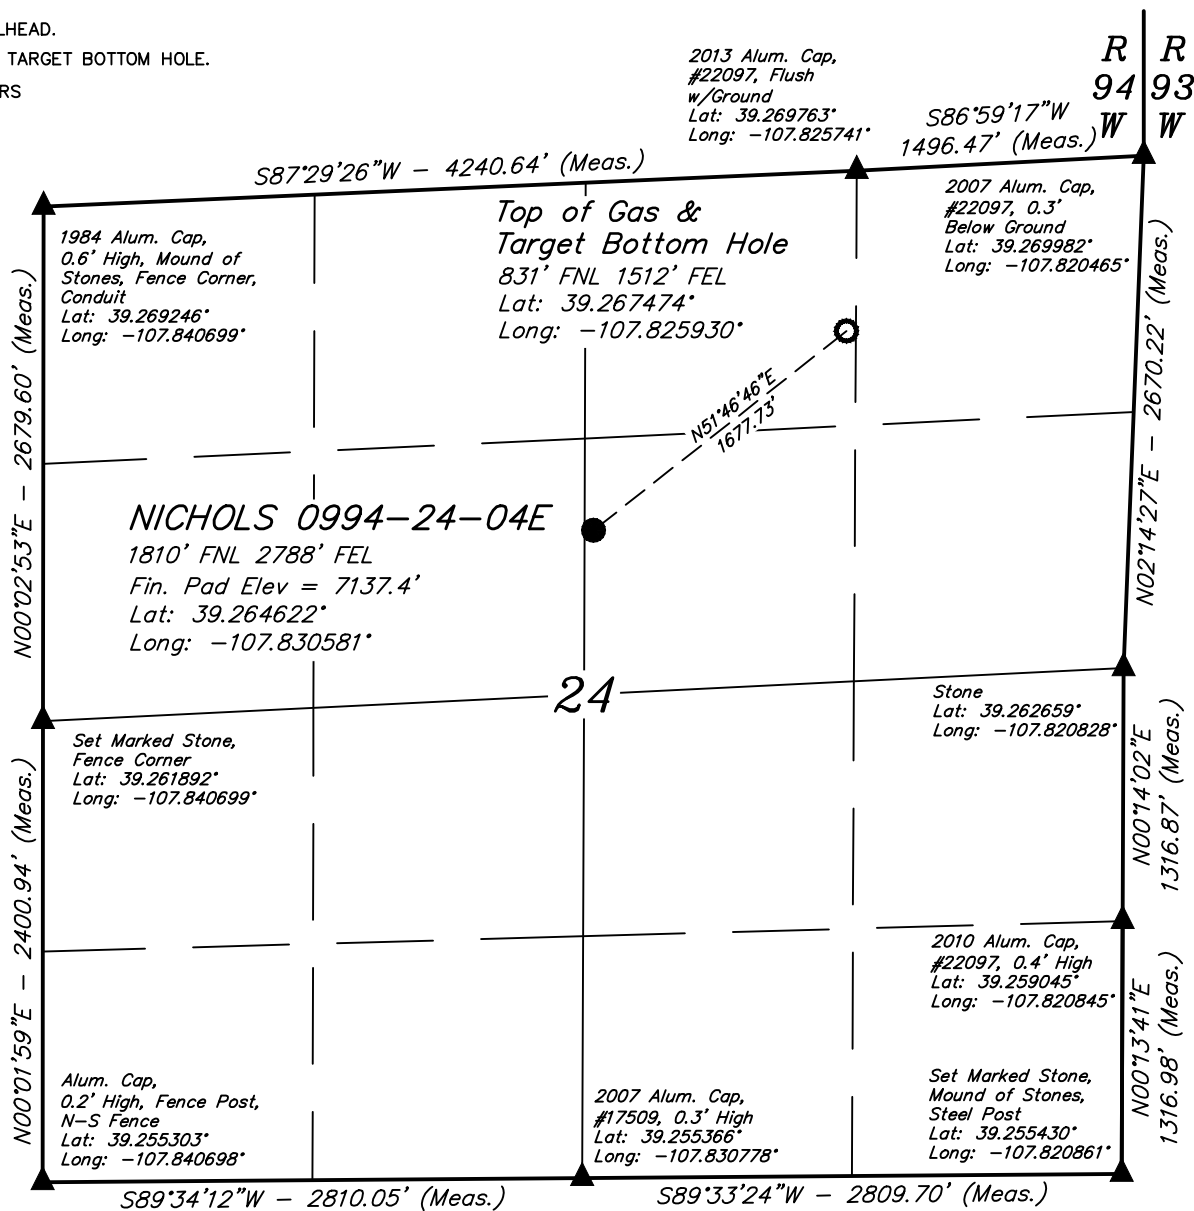 LHEAD.
TARGET BOTTOM HOLE.
RS
R R
94 93
W W
2013 Alum. Cap,
#22097, Flush
w/Ground
Lat: 39.269763°
Long: -107.825741°
S86°59'17"W
1496.47' (Meas.)
S87°29'26"W - 4240.64' (Meas.)
2007 Alum. Cap,
#22097, 0.3'
Below Ground
Lat: 39.269982°
Long: -107.820465°
Top of Gas &
Target Bottom Hole
831' FNL 1512' FEL
Lat: 39.267474°
Long: -107.825930°
1984 Alum. Cap,
0.6' High, Mound of
Stones, Fence Corner,
Conduit
Lat: 39.269246°
Long: -107.840699°
N00°02'53"E - 2679.60' (Meas.)
N02°14'27"E - 2670.22' (Meas.)
N51°46'46"E
1677.73'
NICHOLS 0994-24-04E
1810' FNL 2788' FEL
Fin. Pad Elev = 7137.4'
Lat: 39.264622°
Long: -107.830581°
24
Stone
Lat: 39.262659°
Long: -107.820828°
Set Marked Stone,
Fence Corner
Lat: 39.261892°
Long: -107.840699°
N00°14'02"E
1316.87' (Meas.)
N00°01'59"E - 2400.94' (Meas.)
2010 Alum. Cap,
#22097, 0.4' High
Lat: 39.259045°
Long: -107.820845°
N00°13'41"E
1316.98' (Meas.)
Alum. Cap,
0.2' High, Fence Post,
N-S Fence
Lat: 39.255303°
Long: -107.840698°
2007 Alum. Cap,
#17509, 0.3' High
Lat: 39.255366°
Long: -107.830778°
Set Marked Stone,
Mound of Stones,
Steel Post
Lat: 39.255430°
Long: -107.820861°
S89°34'12"W - 2810.05' (Meas.)
S89°33'24"W - 2809.70' (Meas.)